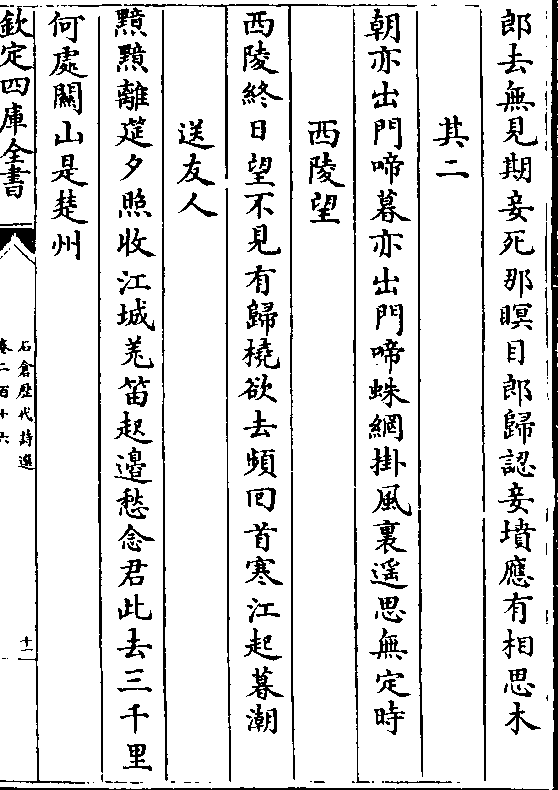 郎去無見期妾死那瞑目郎歸認妾墳應有相思木
其二
朝亦出門啼暮亦出門啼蛛網掛風裏遥思無定時
西陵望
西陵終日望不見有歸橈欲去頻回首寒江起暮潮
送友人
黯黯離筵夕照收江城羌笛起邉愁念君此去三千里
何處闗山是楚州
欽定四庫全書
石倉歴代詩選
卷二百十六
十二